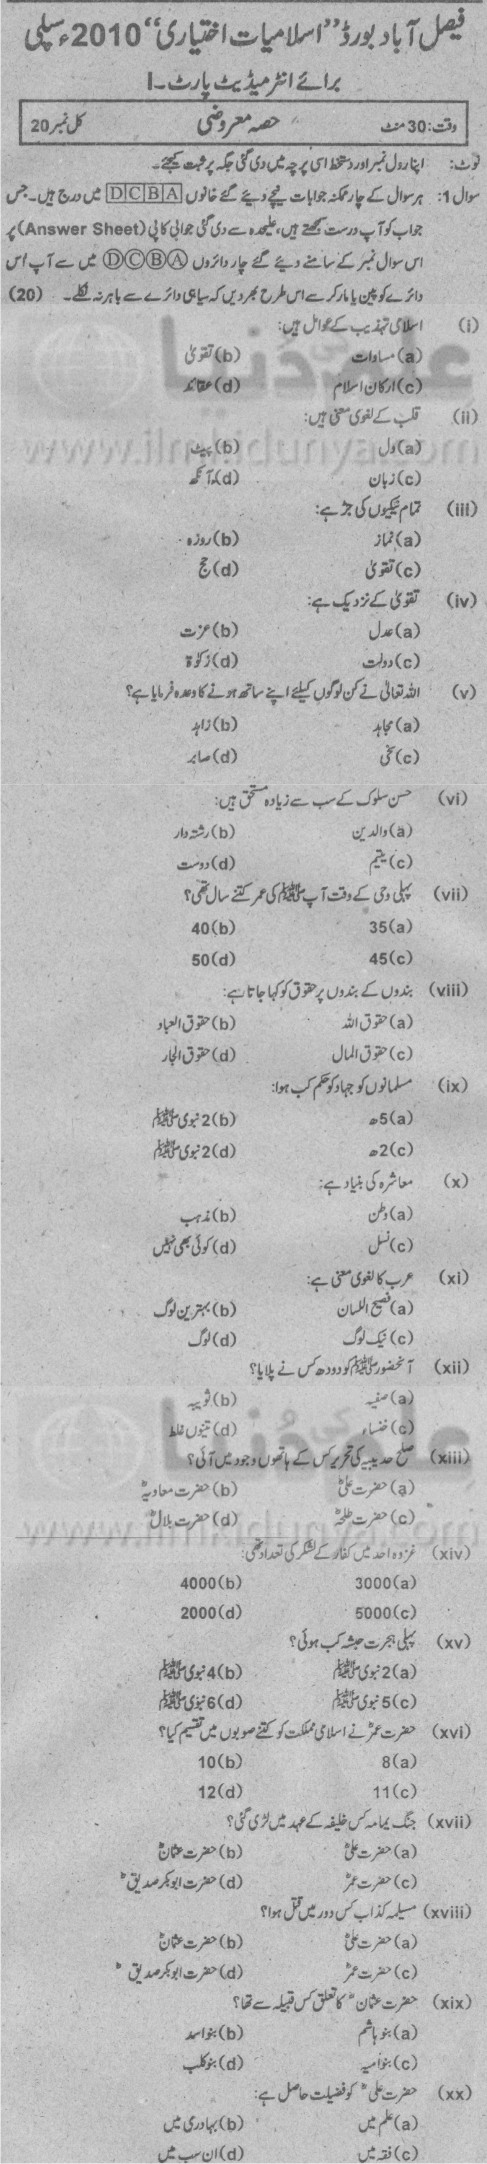 فیصل آباد بورڈ "اسلامیات اختیاری" 2010ء سپلی
برائے انٹرمیڈیٹ پارٹ۔I
وقت: 30 منٹ حصہ معروضی کل نمبر 20
نوٹ: اپنا رول نمبر اور دستخط اسی پرچہ میں دی گئی جگہ پر ثبت کیجئے۔
سوال 1: ہر سوال کے چار ممکنہ جوابات نیچے دیئے گئے خانوں D C B A میں درج ہیں۔ جس
جواب کو آپ درست سمجھتے ہیں، علیحدہ سے دی گئی جوابی کاپی (Answer Sheet) پر
اس سوال نمبر کے سامنے دیئے گئے چار دائروں Ⓓ Ⓒ Ⓑ Ⓐ میں سے آپ اس
دائرے کو پین یا مارکر سے اس طرح بھر دیں کہ سیاہی دائرے سے باہر نہ نکلے۔ (20)
(i) اسلامی تہذیب کے عوامل ہیں:
(a) مساوات (b) تقویٰ
(c) ارکان اسلام (d) عقائد
(ii) قلب کے لغوی معنی ہیں:
(a) دل (b) پیٹ
(c) زبان (d) آنکھ
(iii) تمام نیکیوں کی جڑ ہے:
(a) نماز (b) روزہ
(c) تقویٰ (d) حج
(iv) تقویٰ کے نزدیک ہے:
(a) عدل (b) عزت
(c) دولت (d) زکوٰۃ
(v) اللہ تعالیٰ نے کن لوگوں کیلئے اپنے ساتھ ہونے کا وعدہ فرمایا ہے؟
(a) مجاہد (b) زاہد
(c) سخی (d) صابر
(vi) حسن سلوک کے سب سے زیادہ مستحق ہیں:
(a) والدین (b) رشتہ دار
(c) یتیم (d) دوست
(vii) پہلی وحی کے وقت آپ ﷺ کی عمر کتنے سال تھی؟
35(a) 40(b)
45(c) 50(d)
(viii) بندوں کے بندوں پر حقوق کو کہا جاتا ہے:
(a) حقوق اللہ (b) حقوق العباد
(c) حقوق المال (d) حقوق الجار
(ix) مسلمانوں کو جہاد کو حکم کب ہوا:
(a) 5ھ (b) 2 نبوی ﷺ
(c) 2ھ (d) 2 نبوی ﷺ
(x) معاشرہ کی بنیاد ہے:
(a) وطن (b) مذہب
(c) نسل (d) کوئی بھی نہیں
(xi) عرب کا لغوی معنی ہے:
(a) فصیح اللسان (b) بہترین لوگ
(c) نیک لوگ (d) لوگ
(xii) آنحضور ﷺ کو دودھ کس نے پلایا؟
(a) صفیہ (b) ثوبیہ
(c) خنساء (d) تینوں غلط
(xiii) صلح حدیبیہ کی تحریر کس کے ہاتھوں وجود میں آئی؟
(a) حضرت علیؓ (b) حضرت معاویہؓ
(c) حضرت طلحہؓ (d) حضرت بلالؓ
(xiv) غزوہ احد میں کفار کے لشکر کی تعداد تھی:
3000(a) 4000(b)
5000(c) 2000(d)
(xv) پہلی ہجرت حبشہ کب ہوئی؟
(a) 2 نبوی ﷺ (b) 4 نبوی ﷺ
(c) 5 نبوی ﷺ (d) 6 نبوی ﷺ
(xvi) حضرت عمرؓ نے اسلامی مملکت کو کتنے صوبوں میں تقسیم کیا؟
8(a) 10(b)
11(c) 12(d)
(xvii) جنگ یمامہ کس خلیفہ کے عہد میں لڑی گئی؟
(a) حضرت علیؓ (b) حضرت عثمانؓ
(c) حضرت عمرؓ (d) حضرت ابوبکر صدیقؓ
(xviii) مسیلمہ کذاب کس دور میں قتل ہوا؟
(a) حضرت علیؓ (b) حضرت عثمانؓ
(c) حضرت عمرؓ (d) حضرت ابوبکر صدیقؓ
(xix) حضرت عثمانؓ کا تعلق کس قبیلہ سے تھا؟
(a) بنو ہاشم (b) بنو اسد
(c) بنو امیہ (d) بنو کلب
(xx) حضرت علیؓ کو فضیلت حاصل ہے:
(a) علم میں (b) بہادری میں
(c) فقہ میں (d) ان سب میں
علم کی دنیا
www.ilmkidunya.com
علم کی دنیا
www.ilmkidunya.com